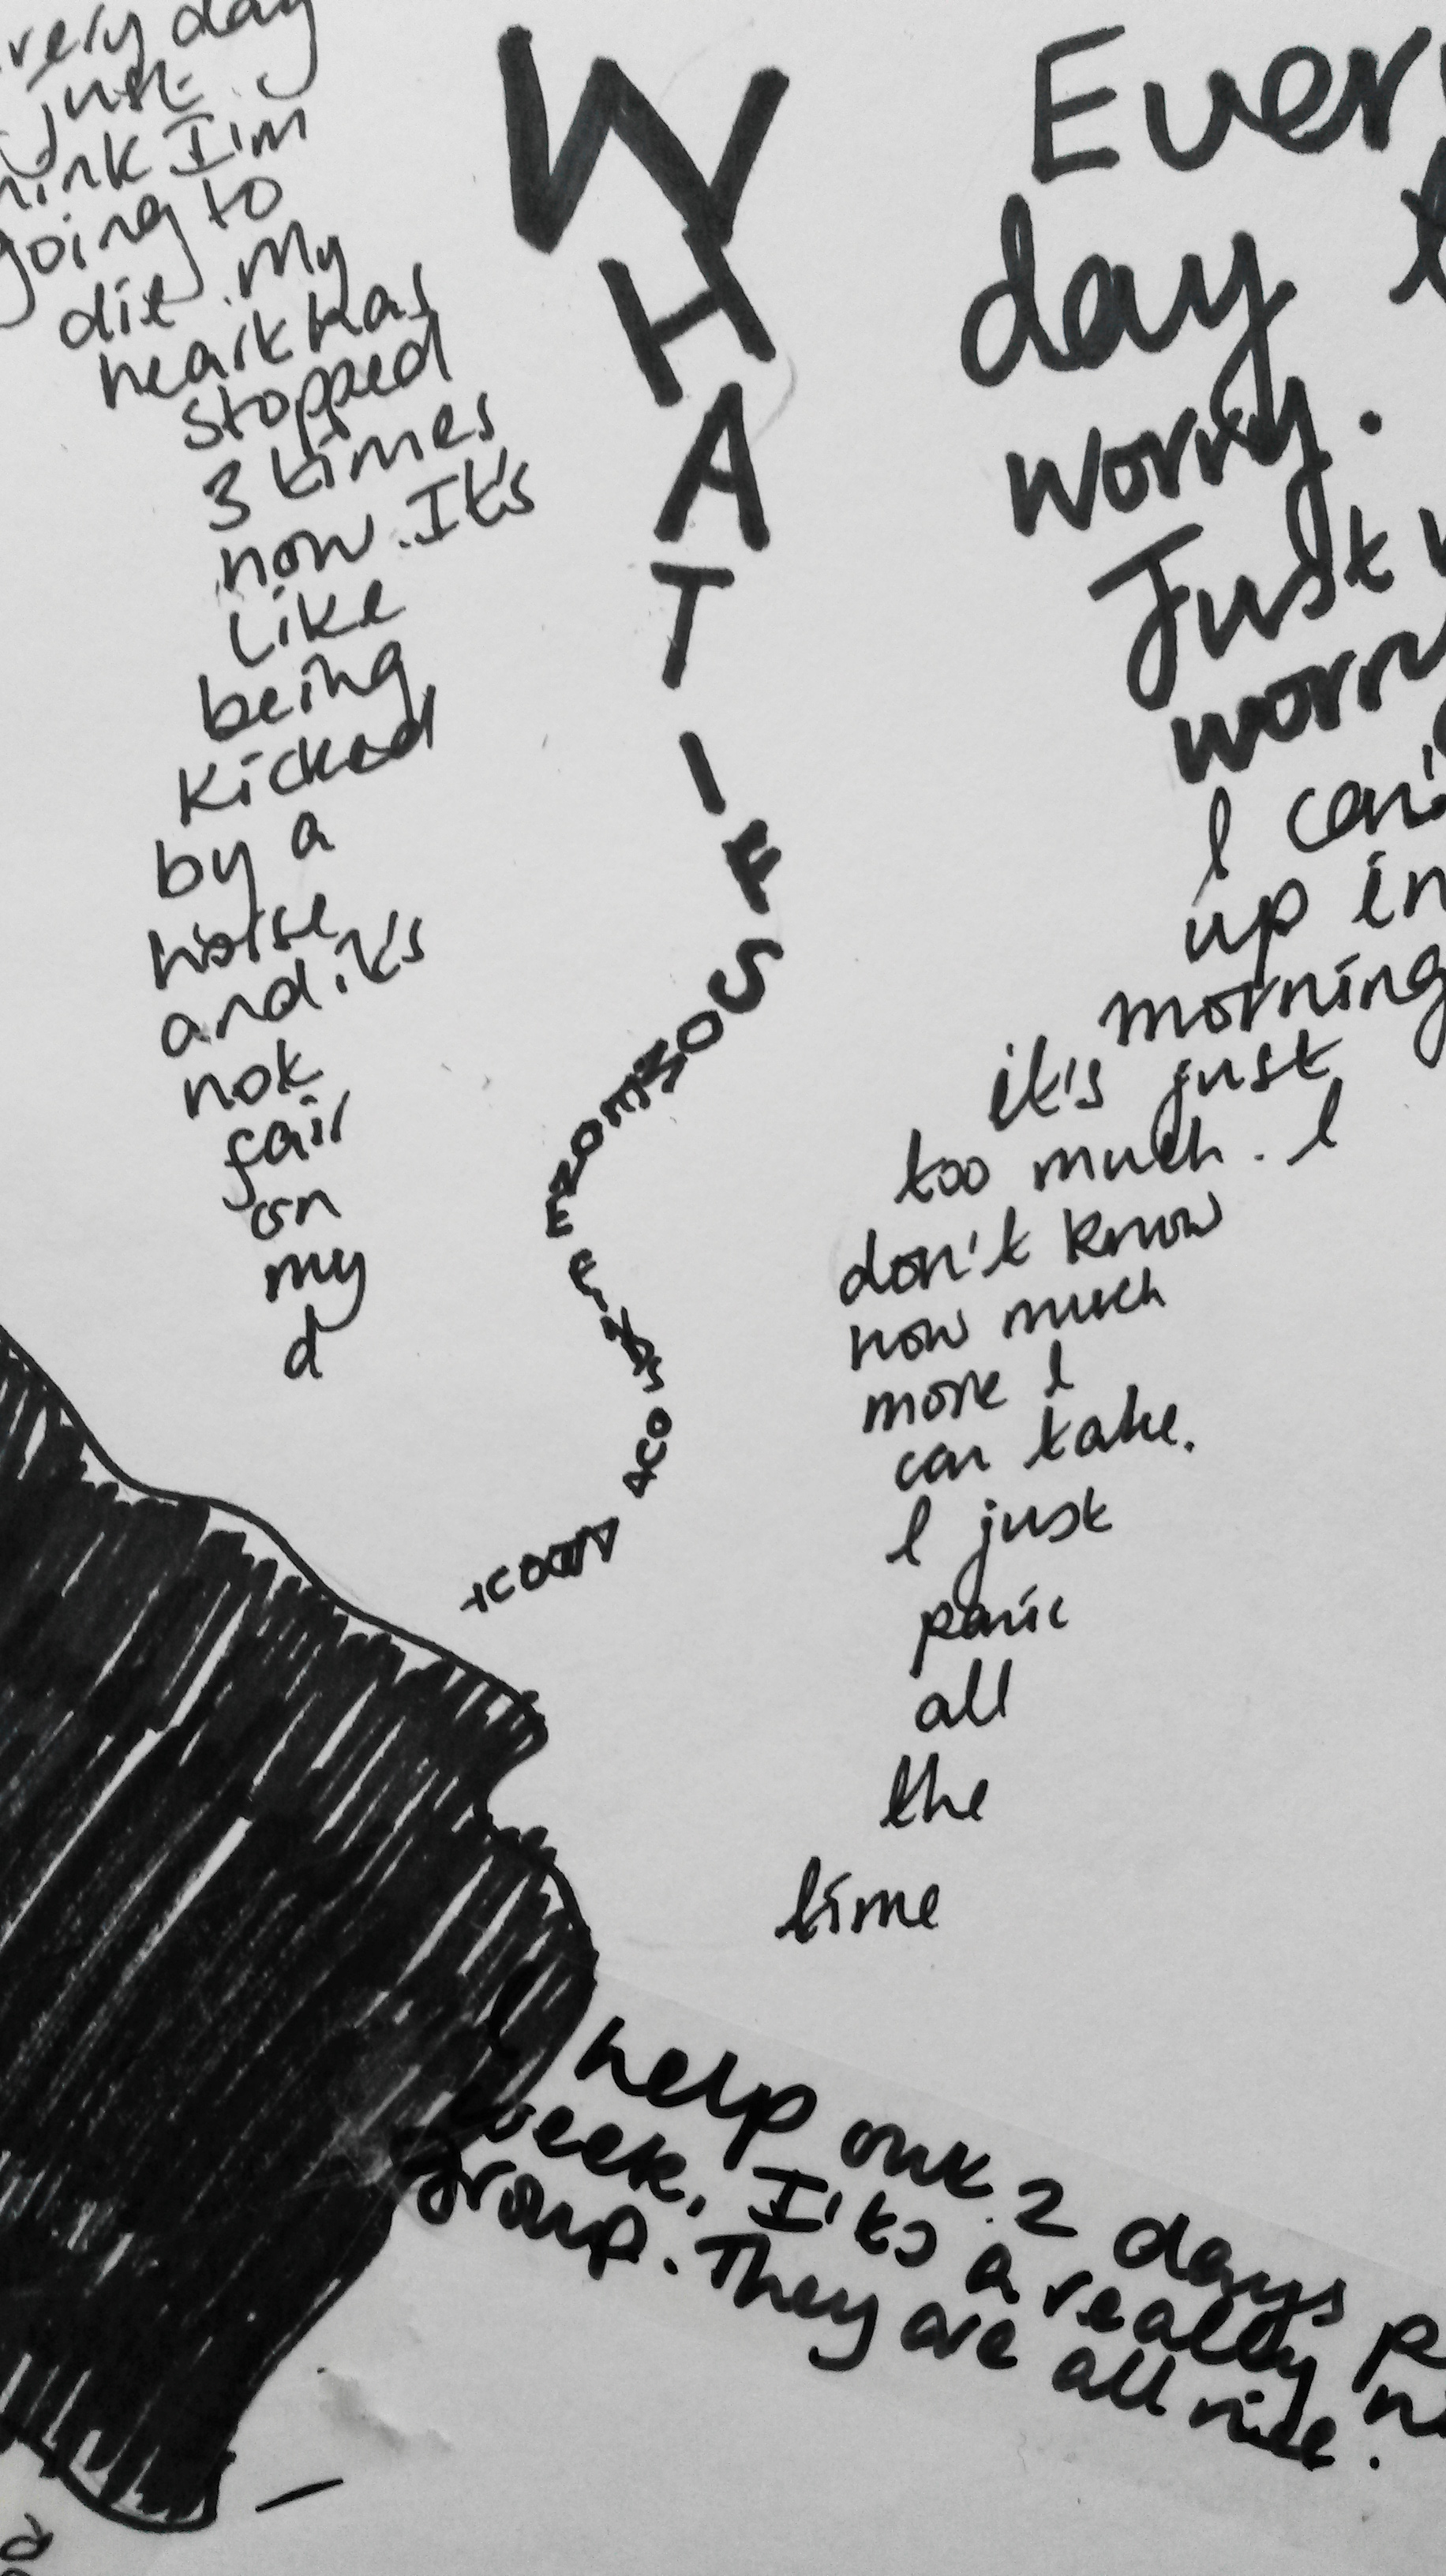 very day
just
think I'm
going to
die. My
heart has
stopped
3 times
now. It's
like
being
kicked
by a
horse
and it's
not
fair
on
my
d
WHAT IF SOMEONE FINDS OUT ABOUT
Every
day
worry.
Just
worry
I can't
up in
morning
it's just
too much. I
don't know
how much
more I
can take.
I just
panic
all
the
time
I help out 2 days p
week. It's a really ni
group. They are all nice.